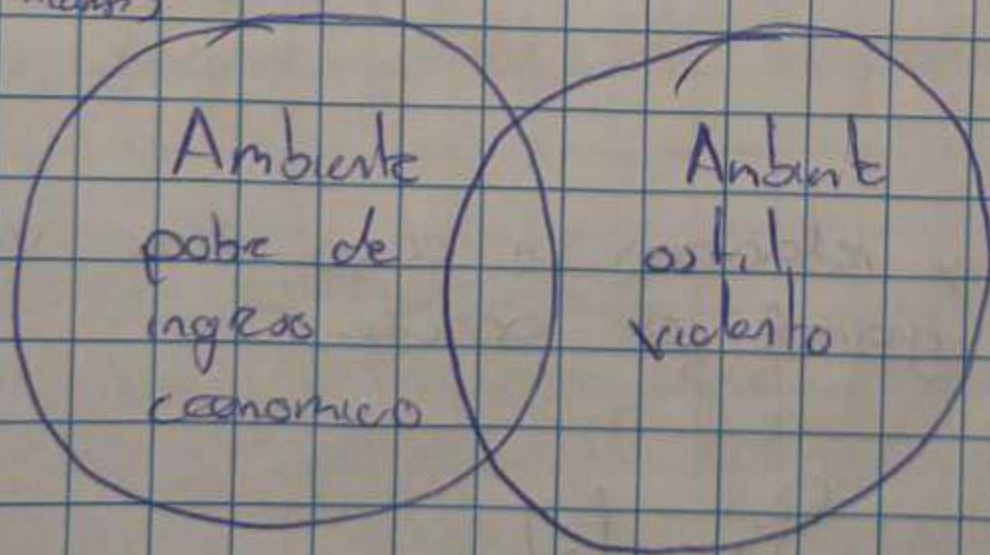 Ambiente
pobre de
ingreso
economico
Ambiente
ostil,
violento